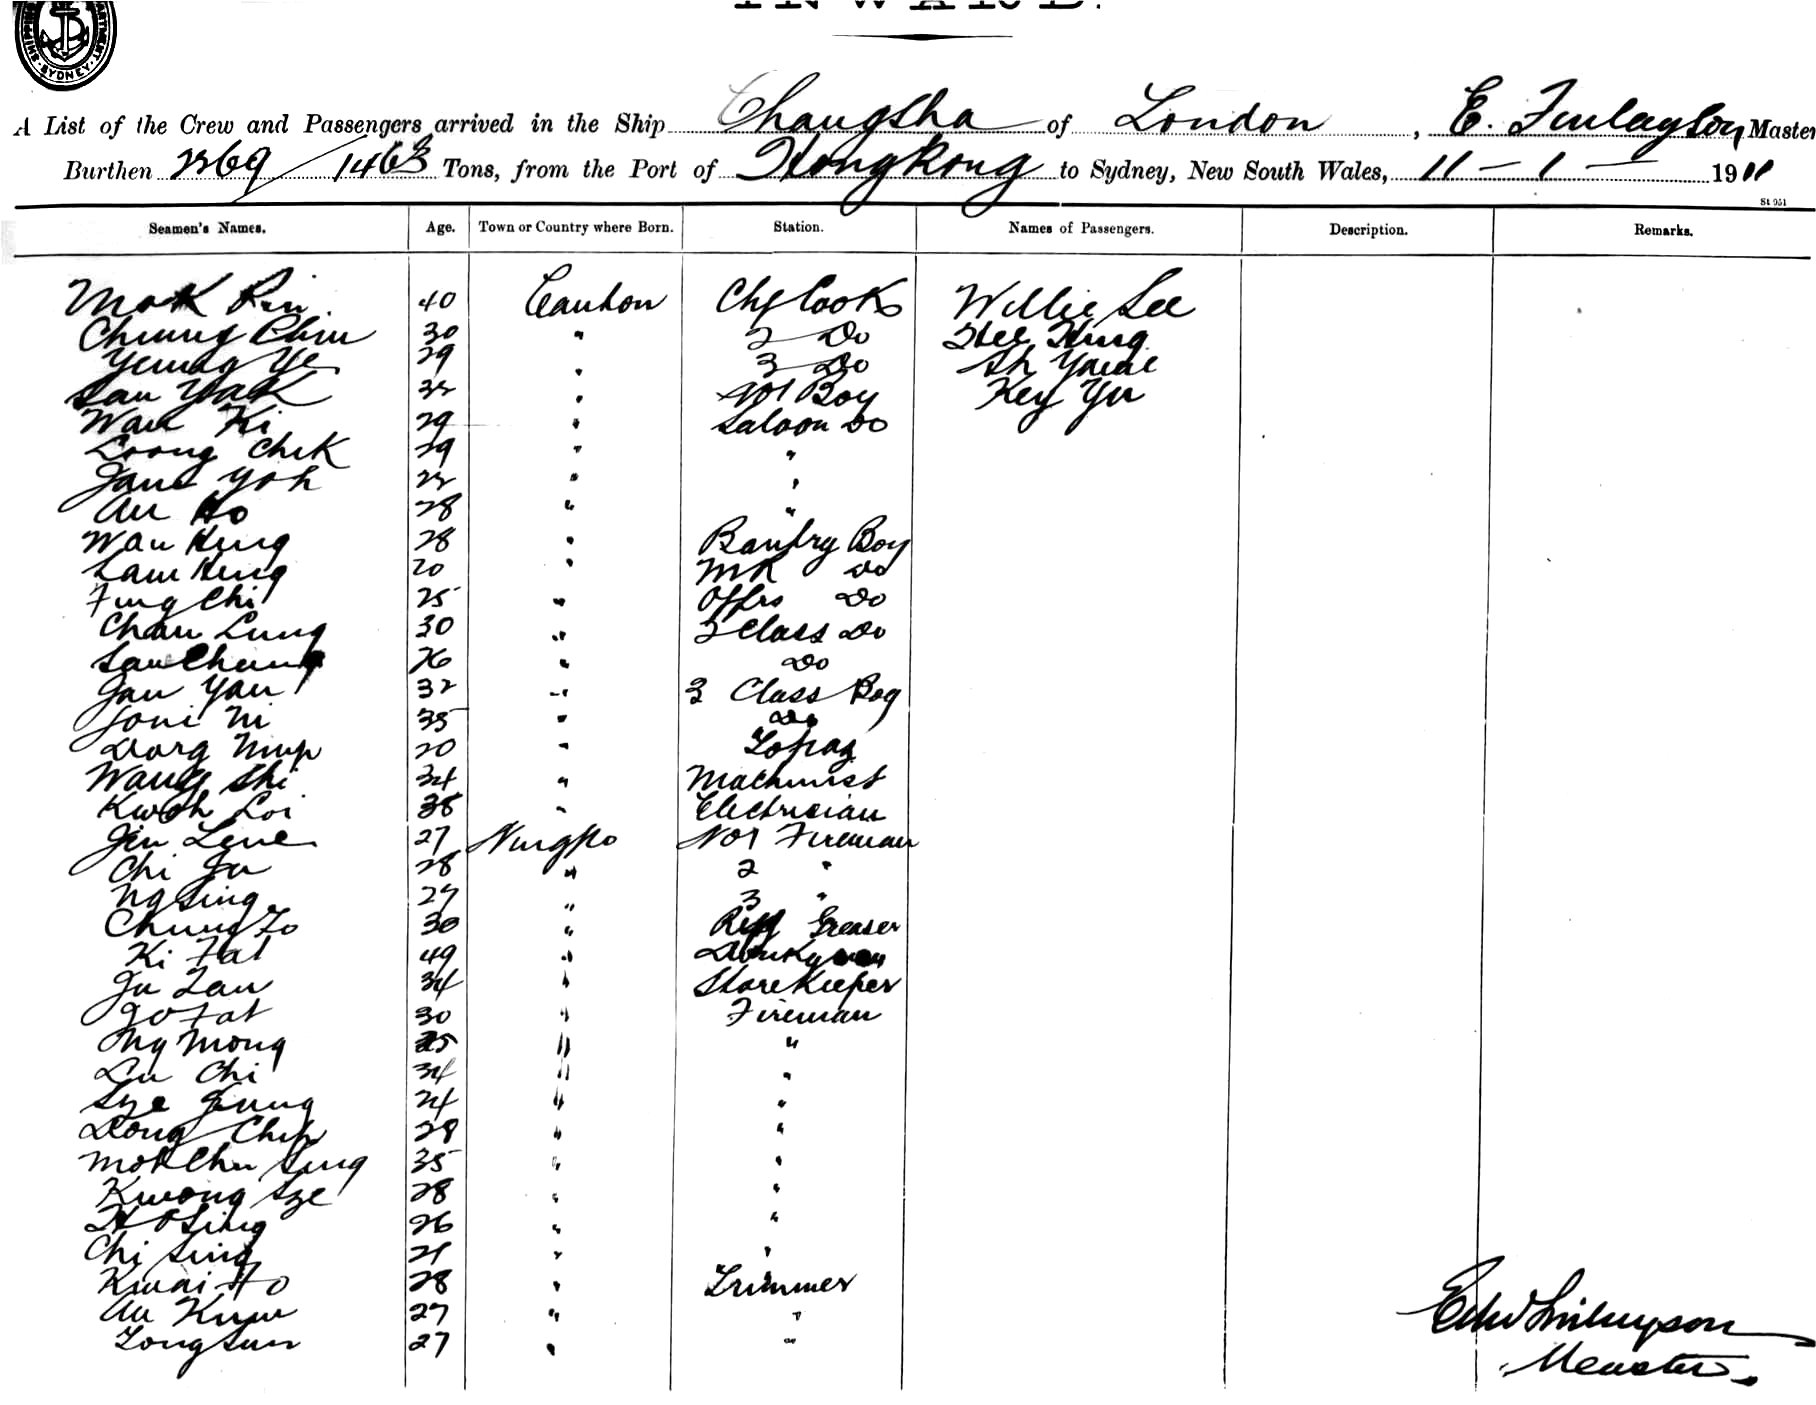 SYDNEY
A List of the Crew and Passengers arrived in the Ship Changsha of London, E. Finlayson, Master
Burthen 2269/1463 Tons, from the Port of Hongkong to Sydney, New South Wales, 11 - 1 - 1911
St 951
Seamen's Names. Age. Town or Country where Born. Station. Names of Passengers. Description. Remarks.
Mok 40 Canton Chf Cook Willie Lee
Cheung 30 " 2 Do Hee Hing
Yeung Ye 29 " 3 Do Ah
Lau Yak 32 " No1 Boy Key Yu
Wan Ki 29 " Saloon Do
Loong Chik 29 " "
Yoh 22 " "
Au Ho 28 " "
Wan Hing 28 " Pantry Boy
Lam Hing 20 " Do
Fung Chi 25 " Offrs Do
Chan Lung 30 " 2 Class Do
Lau Chung 26 " Do
Jan Yau 32 " 3 Class Boy
Ni 35 " Do
20 "
Wang Shi 34 " Machinist
Kwoh Loi 38 " Electrician
27 Ningpo No1 Fireman
Chi 28 " 2 "
Ng Sing 27 " 3 "
Chung Fo 30 " Greaser
Ki Fat 49 " Donkyman
34 " Storekeeper
Go Fat 30 " Fireman
Ng Mong 25 " "
Lu Chi 34 " "
Sze 24 " "
Dong Chip 28 " "
Mok Chu Sing 35 " "
Kwong Sze 28 " "
Ho Sing 26 " "
Chi Sing 21 " "
Kwai Ho 28 " Trimmer
Au Kum 27 " "
Tong Sun 27 " "
Edw Finlayson
Master.